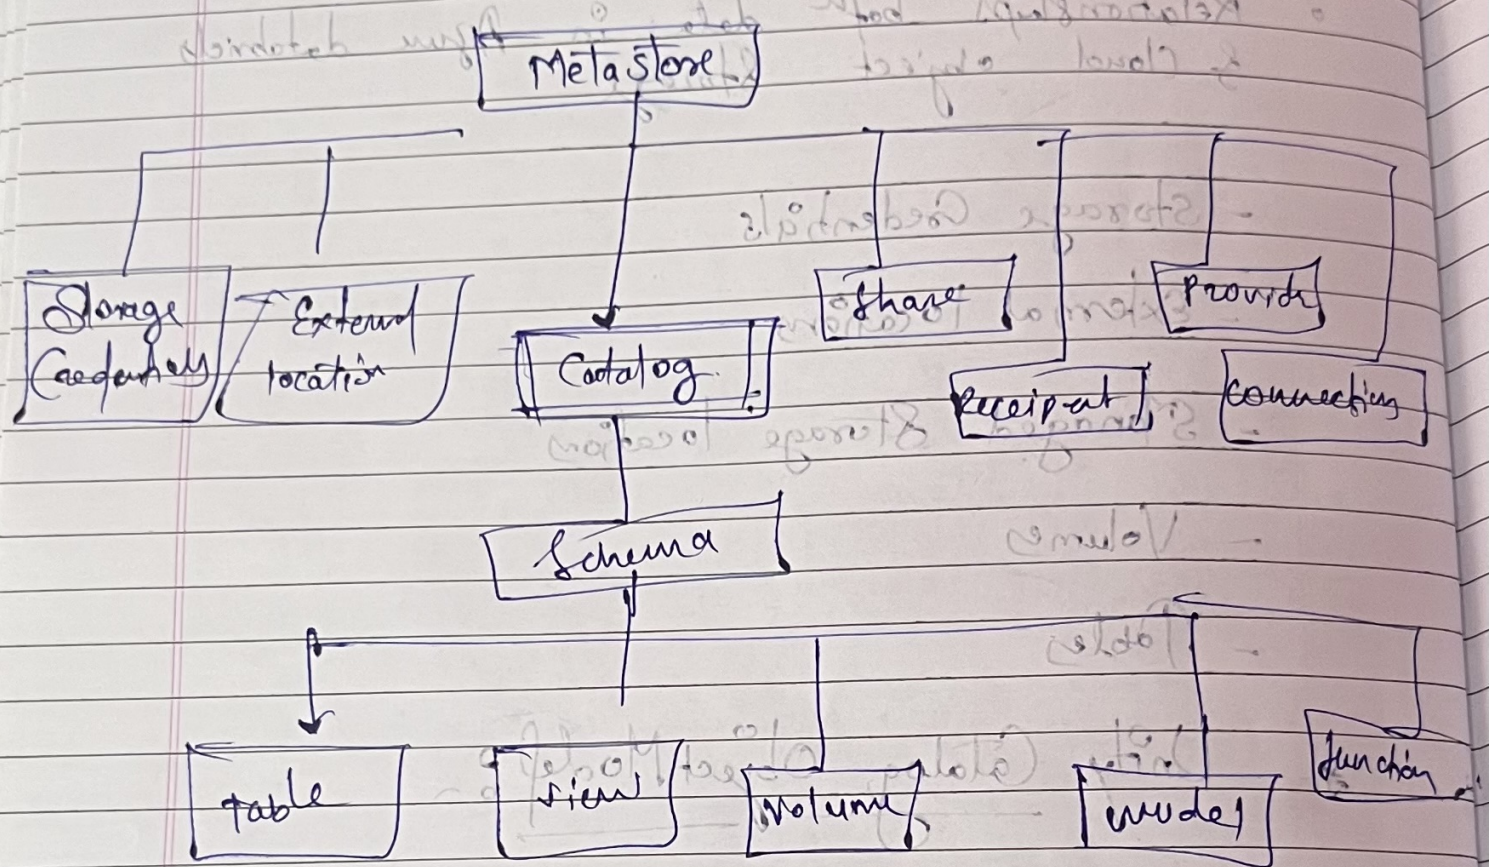 Metastore
Storage
Credentials
External
location
Catalog
Share
Receipent
Provider
Connecting
Schema
table
view
Volume
model
function